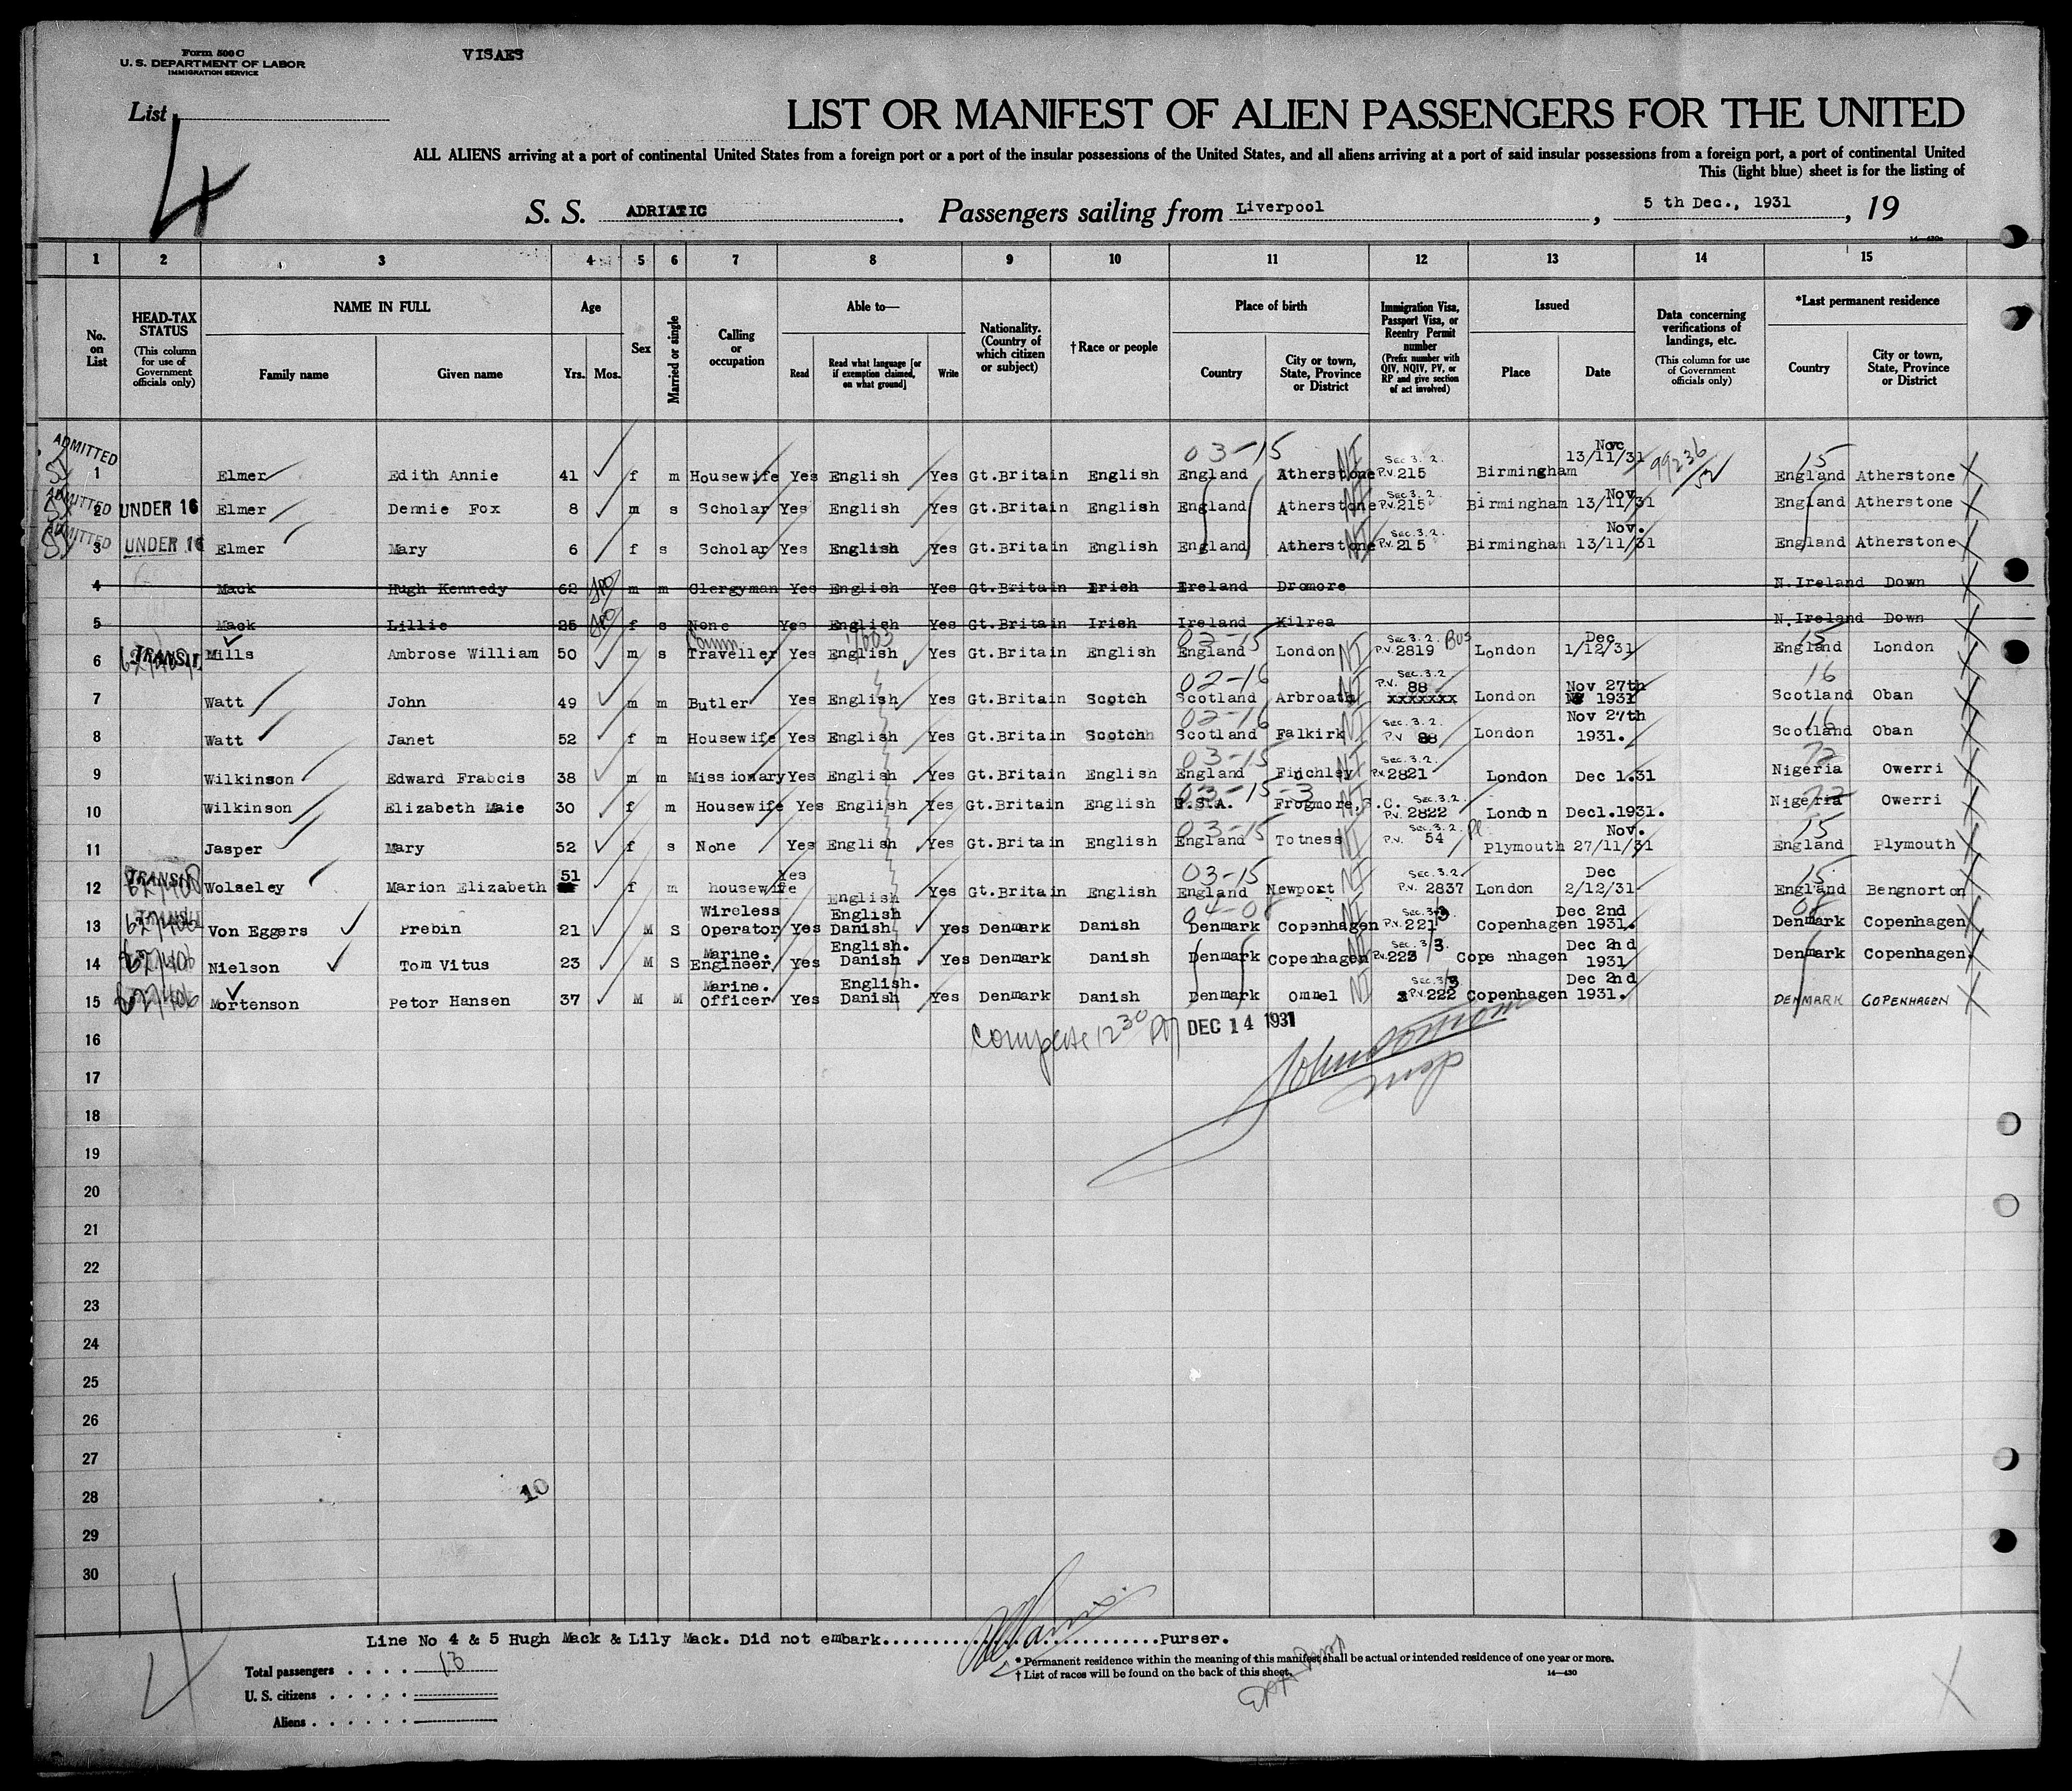 Form 500 C
U. S. DEPARTMENT OF LABOR
IMMIGRATION SERVICE
VISAES
List
4
LIST OR MANIFEST OF ALIEN PASSENGERS FOR THE UNITED
ALL ALIENS arriving at a port of continental United States from a foreign port or a port of the insular possessions of the United States, and all aliens arriving at a port of said insular possessions from a foreign port, a port of continental United
This (light blue) sheet is for the listing of
S. S. ADRIATIC. Passengers sailing from Liverpool, 5 th Dec., 1931, 19
14—430a
1 2 3 4 5 6 7 8 9 10 11 12 13 14 15
No. on List
HEAD-TAX STATUS (This column for use of Government officials only)
NAME IN FULL Family name Given name
Age Yrs. Mos.
Sex
Married or single
Calling or occupation
Able to— Read Read what language [or if exemption claimed, on what ground] Write
Nationality. (Country of which citizen or subject)
†Race or people
Place of birth Country City or town, State, Province or District
Immigration Visa, Passport Visa, or Reentry Permit number (Prefix number with QIV, NQIV, PV, or RP and give section of act involved)
Issued Place Date
Data concerning verifications of landings, etc. (This column for use of Government officials only)
*Last permanent residence Country City or town, State, Province or District
ADMITTED 1 Elmer Edith Annie 41 f m Housewife Yes English Yes Gt.Britain English 03-15 England Atherstone NI Sec.3.2. P.V. 215 Birmingham Nov 13/11/31 99236/52 15 England Atherstone
ADMITTED 2 UNDER 16 Elmer Dennie Fox 8 m s Scholar Yes English Yes Gt.Britain English England Atherstone NI Sec.3.2. P.V. 215 Birmingham Nov. 13/11/31 England Atherstone
ADMITTED 3 UNDER 16 Elmer Mary 6 f s Scholar Yes English Yes Gt.Britain English England Atherstone NI Sec.3.2. P.V. 215 Birmingham Nov. 13/11/31 England Atherstone
4 Mack Hugh Kennedy 62 m m Clergyman Yes English Yes Gt.Britain Irish Ireland Dromore N.Ireland Down
5 Mack Lillie 25 f s None Yes English Yes Gt.Britain Irish Ireland Kilrea N.Ireland Down
6 TRANSIT Mills Ambrose William 50 m s Comm Traveller Yes English Yes Gt.Britain English 03-15 England London NI Sec.3.2. Bus P.V. 2819 London Dec 1/12/31 15 England London
7 Watt John 49 m m Butler Yes English Yes Gt.Britain Scotch 02-16 Scotland Arbroath NI Sec.3.2 P.V. 88 xxxxxxx London Nov 27th 1931 16 Scotland Oban
8 Watt Janet 52 f m Housewife Yes English Yes Gt.Britain Scotch 02-16 Scotland Falkirk NI Sec.3.2. P.V 88 London Nov 27th 1931. 16 Scotland Oban
9 Wilkinson Edward Frabcis 38 m m Missionary Yes English Yes Gt.Britain English 03-15 England Finchley NI Sec.3.2. P.V. 2821 London Dec 1.31 72 Nigeria Owerri
10 Wilkinson Elizabeth Maie 30 f m Housewife Yes English Yes Gt.Britain English 03-15-3 U.S.A. Frogmore,S.C. NI Sec.3.2. P.V. 2822 London Dec1.1931. 72 Nigeria Owerri
11 Jasper Mary 52 f s None Yes English Yes Gt.Britain English 03-15 England Totness NI Sec.3.2. Pl P.V. 54 Plymouth Nov. 27/11/31 15 England Plymouth
12 TRANSIT Wolseley Marion Elizabeth 51 f m housewife Yes English Yes Gt.Britain English 03-15 England Newport NI Sec.3.2 P.V. 2837 London Dec 2/12/31 15 England Bengnorton
13 627406 Von Eggers Prebin 21 M S Wireless operator Yes English Danish Yes Denmark Danish 04-08 Denmark Copenhagen NI Sec.3/3 P.V. 221 Copenhagen Dec 2nd 1931. 08 Denmark Copenhagen
14 627406 Nielson Tom Vitus 23 M S Marine. Engineer Yes English. Danish Yes Denmark Danish Denmark Copenhagen NI Sec.3/3. P.V. 223 Cope nhagen Dec 2nd 1931 Denmark Copenhagen.
15 627406 Mortenson Petor Hansen 37 M M Marine. officer Yes English. Danish Yes Denmark Danish Denmark Ommel NI Sec.3/3 P.V. 222 Copenhagen Dec 2nd 1931. DENMARK COPENHAGEN
16 12 30 PM DEC 14 1931
17
18
19
20
21
22
23
24
25
26
27
28 10
29
30
Line No 4 & 5 Hugh Mack & Lily Mack. Did not embark............................Purser.
4
Total passengers . . . . 13
U. S. citizens . . . . .
Aliens . . . . . .
* Permanent residence within the meaning of this manifest shall be actual or intended residence of one year or more.
† List of races will be found on the back of this sheet.
14—430